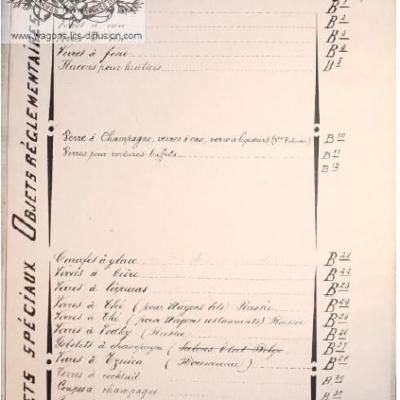 www.wagons-lits-diffusion.com
OBJETS RÉGLEMENTAIRES
B 1
Verres à eau B 2
B 3
Verres à fine B 4
Flacons pour huiliers B 5
Verre à Champagne, verres à eau, verre à liqueurs B 10
Verres pour voitures buffets B 11
B 12
OBJETS SPÉCIAUX
Carafes à glace B 21
Verres à bière B 22
Verres à liqueurs B 23
Verres à Thé (pour Wagons lits) Russie B 24
Verres à Thé (pour Wagons restaurants) Russie B 25
Verres à Vodky (Russie B 26
Gobelets à champagne ( Salons B 27
Verres à Tzuica (Roumanie) B 28
Verres à cocktail B 29
Coupes à champagne B 30